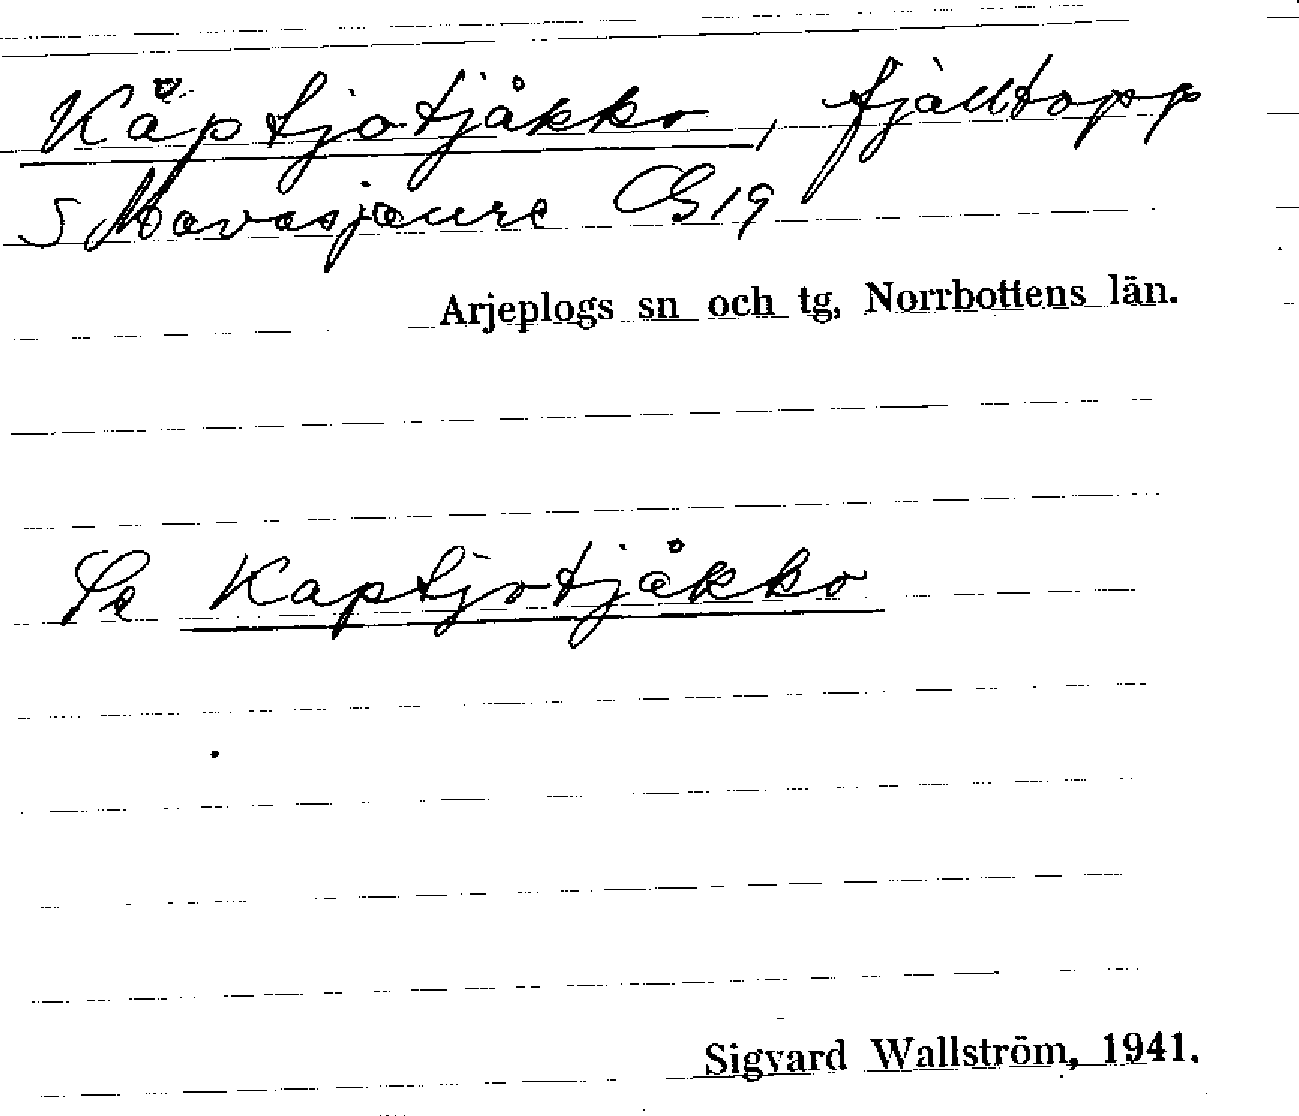 Kåptjotjåkko, fjälltopp
S Mavasjaure GS19
Arjeplogs sn och tg, Norrbottens län.
Se Kaptjotjåkko
Sigvard Wallström, 1941.